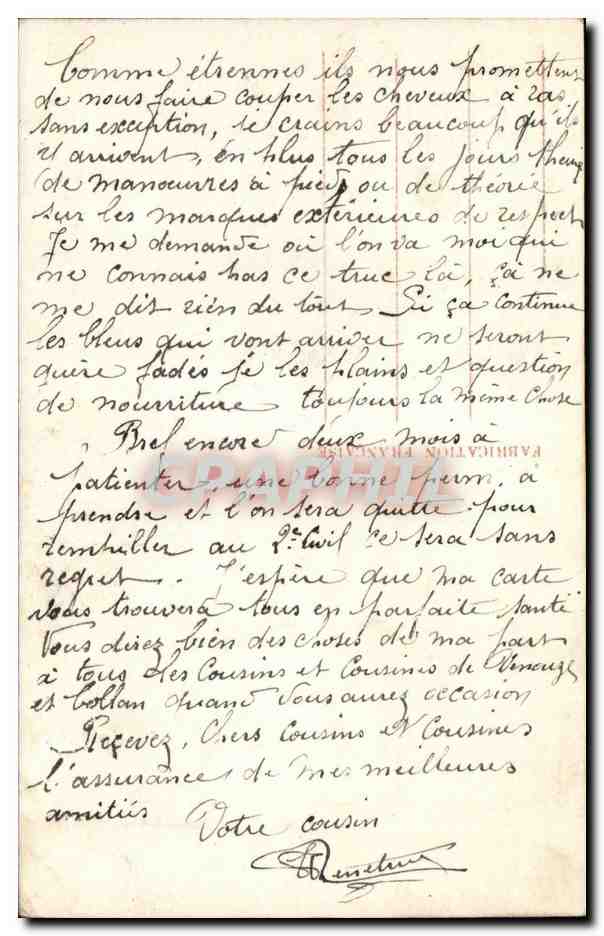 Comme étrennes ils nous promettent
de nous faire couper les cheveux à ras
sans exception, je crains beaucoup qu'ils
y arrivent, en plus tous les jours
de manoeuvres à pieds ou de théorie
sur les marques extérieures de respect
Je me demande où l'on va moi qui
ne connais pas ce truc là, çà ne
me dit rien du tout. Si ça continue
les bleus qui vont arriver ne seront
guère fadés je les plains et question
de nourriture toujours la même chose
Bref encore deux mois à
patienter, une bonne perm. à
prendre et l'on sera quitte pour
rempiller au 2e Civil ce sera sans
regret. J'espère que ma carte
vous trouvera tous en parfaite santé
Vous direz bien des choses de ma part
à tous les Cousins et Cousines de
et Collan quand vous aurez occasion
Recevez, Chers Cousins et Cousines
l'assurance de mes meilleures
amitiés
Votre cousin
FABRICATION FRANÇAISE
CPAPHIL